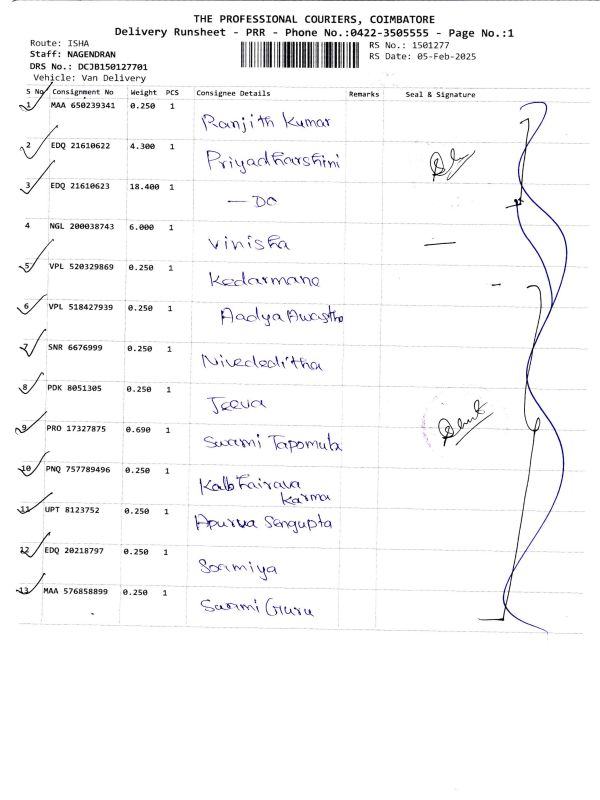 THE PROFESSIONAL COURIERS, COIMBATORE
Delivery Runsheet - PRR - Phone No.:0422-3505555 - Page No.:1
Route: ISHA
RS No.: 1501277
Staff: NAGENDRAN
RS Date: 05-Feb-2025
DRS No.: DCJB150127701
Vehicle: Van Delivery
S No Consignment No Weight PCS Consignee Details Remarks Seal & Signature
1 MAA 650239341 0.250 1
Ranjith Kumar
2 EDQ 21610622 4.300 1
Priyadharshini
3 EDQ 21610623 18.400 1
— DO
4 NGL 200038743 6.000 1
Vinisha —
5 VPL 520329869 0.250 1
Kedarmane -
6 VPL 518427939 0.250 1
Aadya Awastho
7 SNR 6676999 0.250 1
Nivededitha
8 PDK 8051305 0.250 1
Jeeva
9 PRO 17327875 0.690 1
Swami Tapomuta
10 PNQ 757789496 0.250 1
Kalbhairava
Karma
11 UPT 8123752 0.250 1
Apurva Sengupta
12 EDQ 20218797 0.250 1
Sowmiya
13 MAA 576858899 0.250 1
Swami Guru